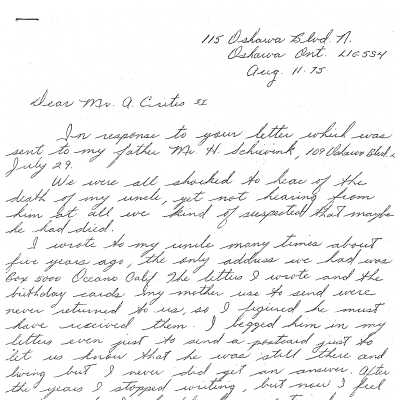 115 Oshawa Blvd N.
Oshawa Ont. L1G 5S4
Aug. 11. 75
Dear Mr. A. Curtis II
In response to your letter which was
sent to my father Mr H. Schievink, 109 Oshawa Blvd.
July 29.
We were all shocked to hear of the
death of my uncle, yet not hearing from
him at all we kind of suspected that maybe
he had died.
I wrote to my uncle many times about
five years ago, the only address we had was
Box 5000 Oceano Calif. The letters I wrote and the
birthday cards my mother use to send were
never returned to us, so I figured he must
have received them. I begged him in my
letters even just to send a postcard just to
let us know that he was still there and
living but I never did get an answer. After
the years I stopped writing, but now I feel